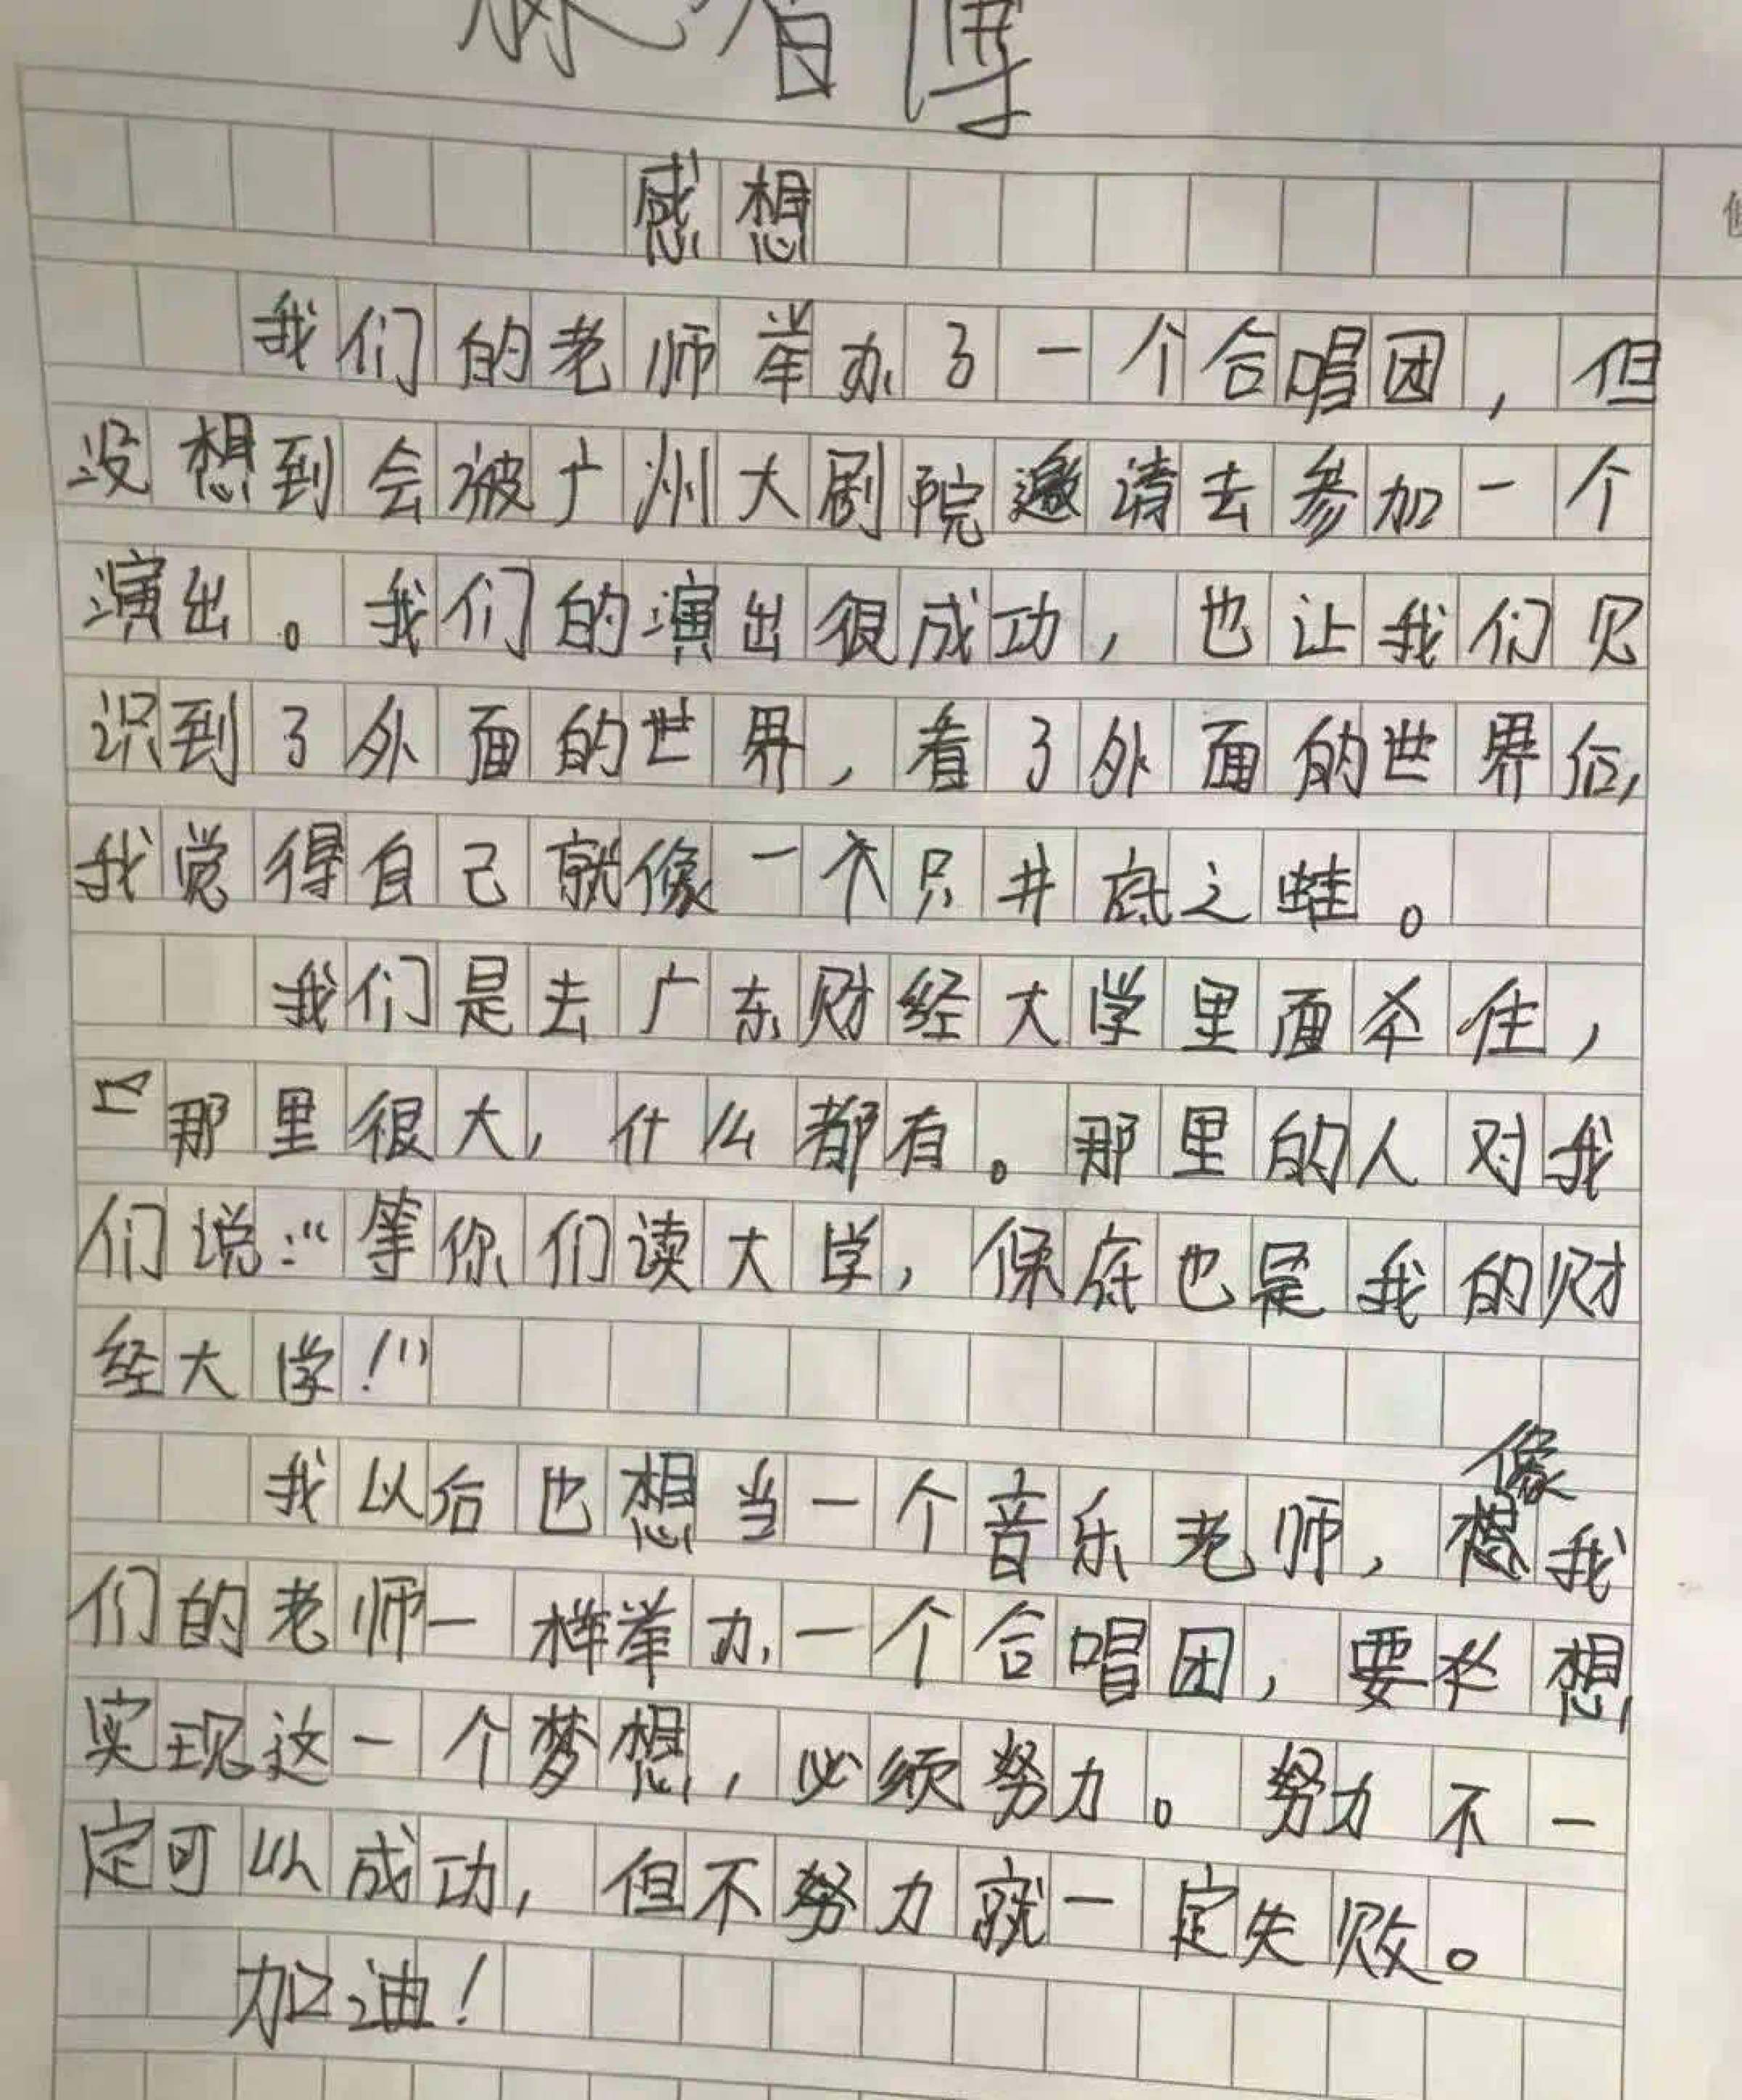 智博
感想
我们的老师举办了一个合唱团，但
没想到会被广州大剧院邀请去参加一个
演出。我们的演出很成功，也让我们见
识到了外面的世界，看了外面的世界后，
我觉得自己就像一个只井底之蛙。
我们是去广东财经大学里面住，
那里很大，什么都有。那里的人对我
们说：“等你们读大学，保底也是我的财
经大学！”
像
我以后也想当一个音乐老师，想我
们的老师一样举办一个合唱团，要想
实现这一个梦想，必须努力。努力不一
定可以成功，但不努力就一定失败。
加油！